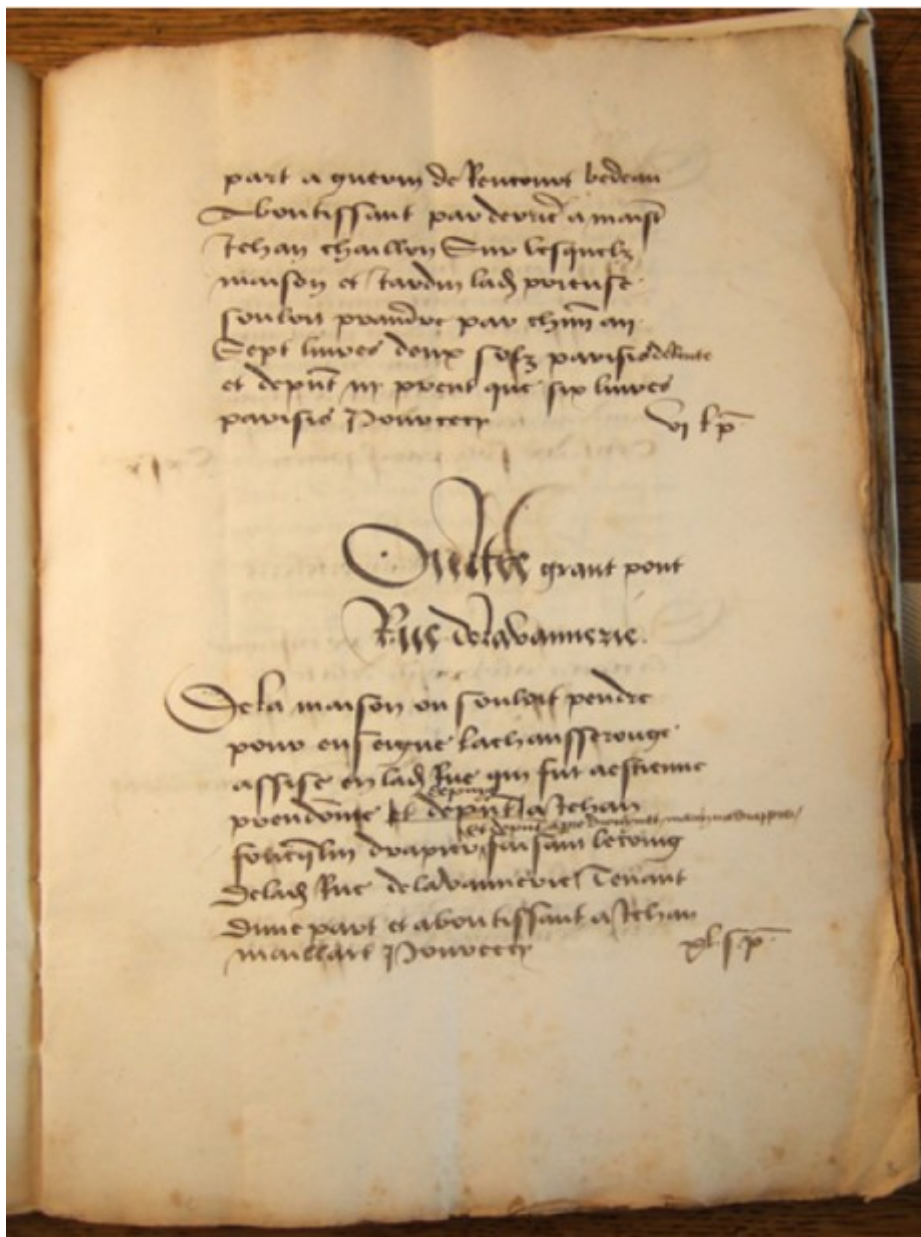 part a guerin de Rencourt bedeau
Aboutissant par derrie a maist
Jehan chaillou Sur lesquelz
maison et Jardin lad prieuse
souloit prandre par chun an
Sept livres deux solz parisis
et depnt ny prent que six livres
parisis Pour cecy vi l p
Oultre grant pont
Rue delavannerie
De la maison ou souloit pendre
pour enseigne lachausserouge
assise en lad Rue qui fut aestienne
depuis
et depnt a Jehan
drapier faisant le coing
delad Rue delavannerie Tenant
dune part et aboutissant a Jehan
maillart Pour cecy xl s p